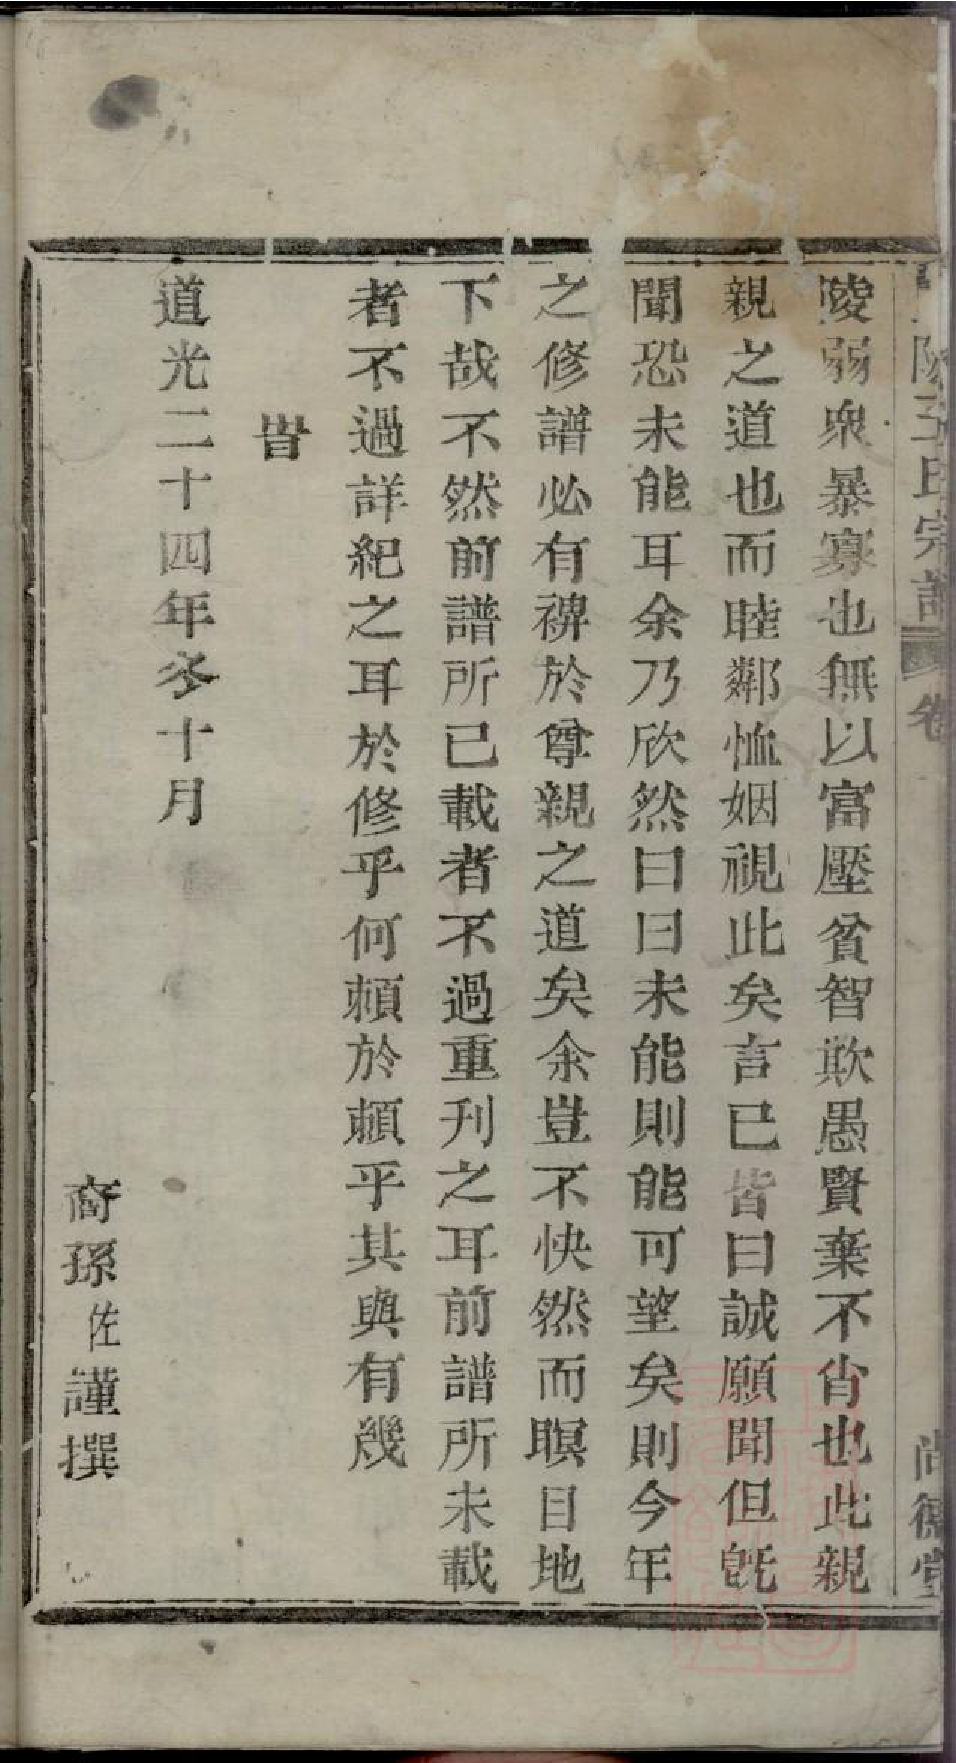 氏宗譜 卷 尚德堂
陵弱衆暴寡也無以富壓貧智欺愚賢棄不肖也此親
親之道也而睦鄰恤姻視此矣言已皆曰誠願聞但旣
聞恐未能耳余乃欣然曰曰未能則能可望矣則今年
之修譜必有裨於尊親之道矣余豈不快然而瞑目地
下哉不然前譜所已載者不過重刊之耳前譜所未載
者不過詳紀之耳於修乎何賴於賴乎其與有幾
旹
道光二十四年冬十月
裔孫佐謹撰